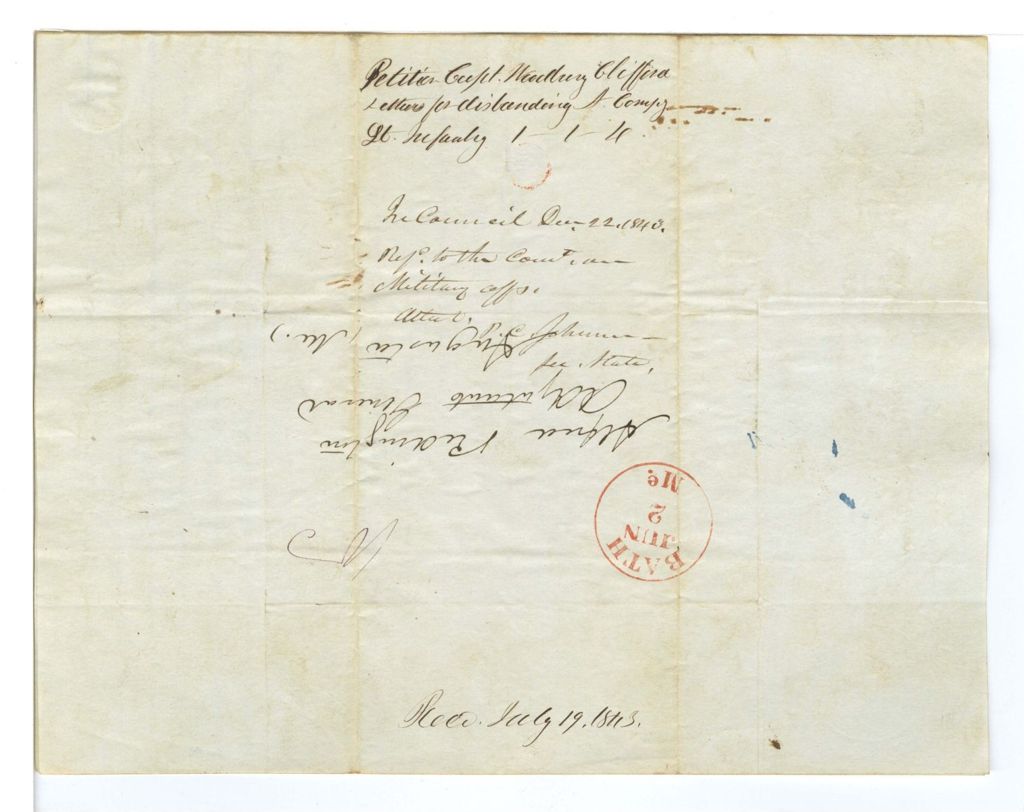 Petition Capt. Woodbury Clifford
Letters for disbanding A Comp'y
Lt. Infantry 1 – 1 – 4
In Council Dec. 22. 1843.
Ref'd. to the Com'tee on
Military aff's.
Attest.
P. C. Johnson
Sec. State,
Alfred Redington
Adjutant General
Augusta (Me.)
BATH
JUN
2
Me.
10
Recd. July 19. 1843.